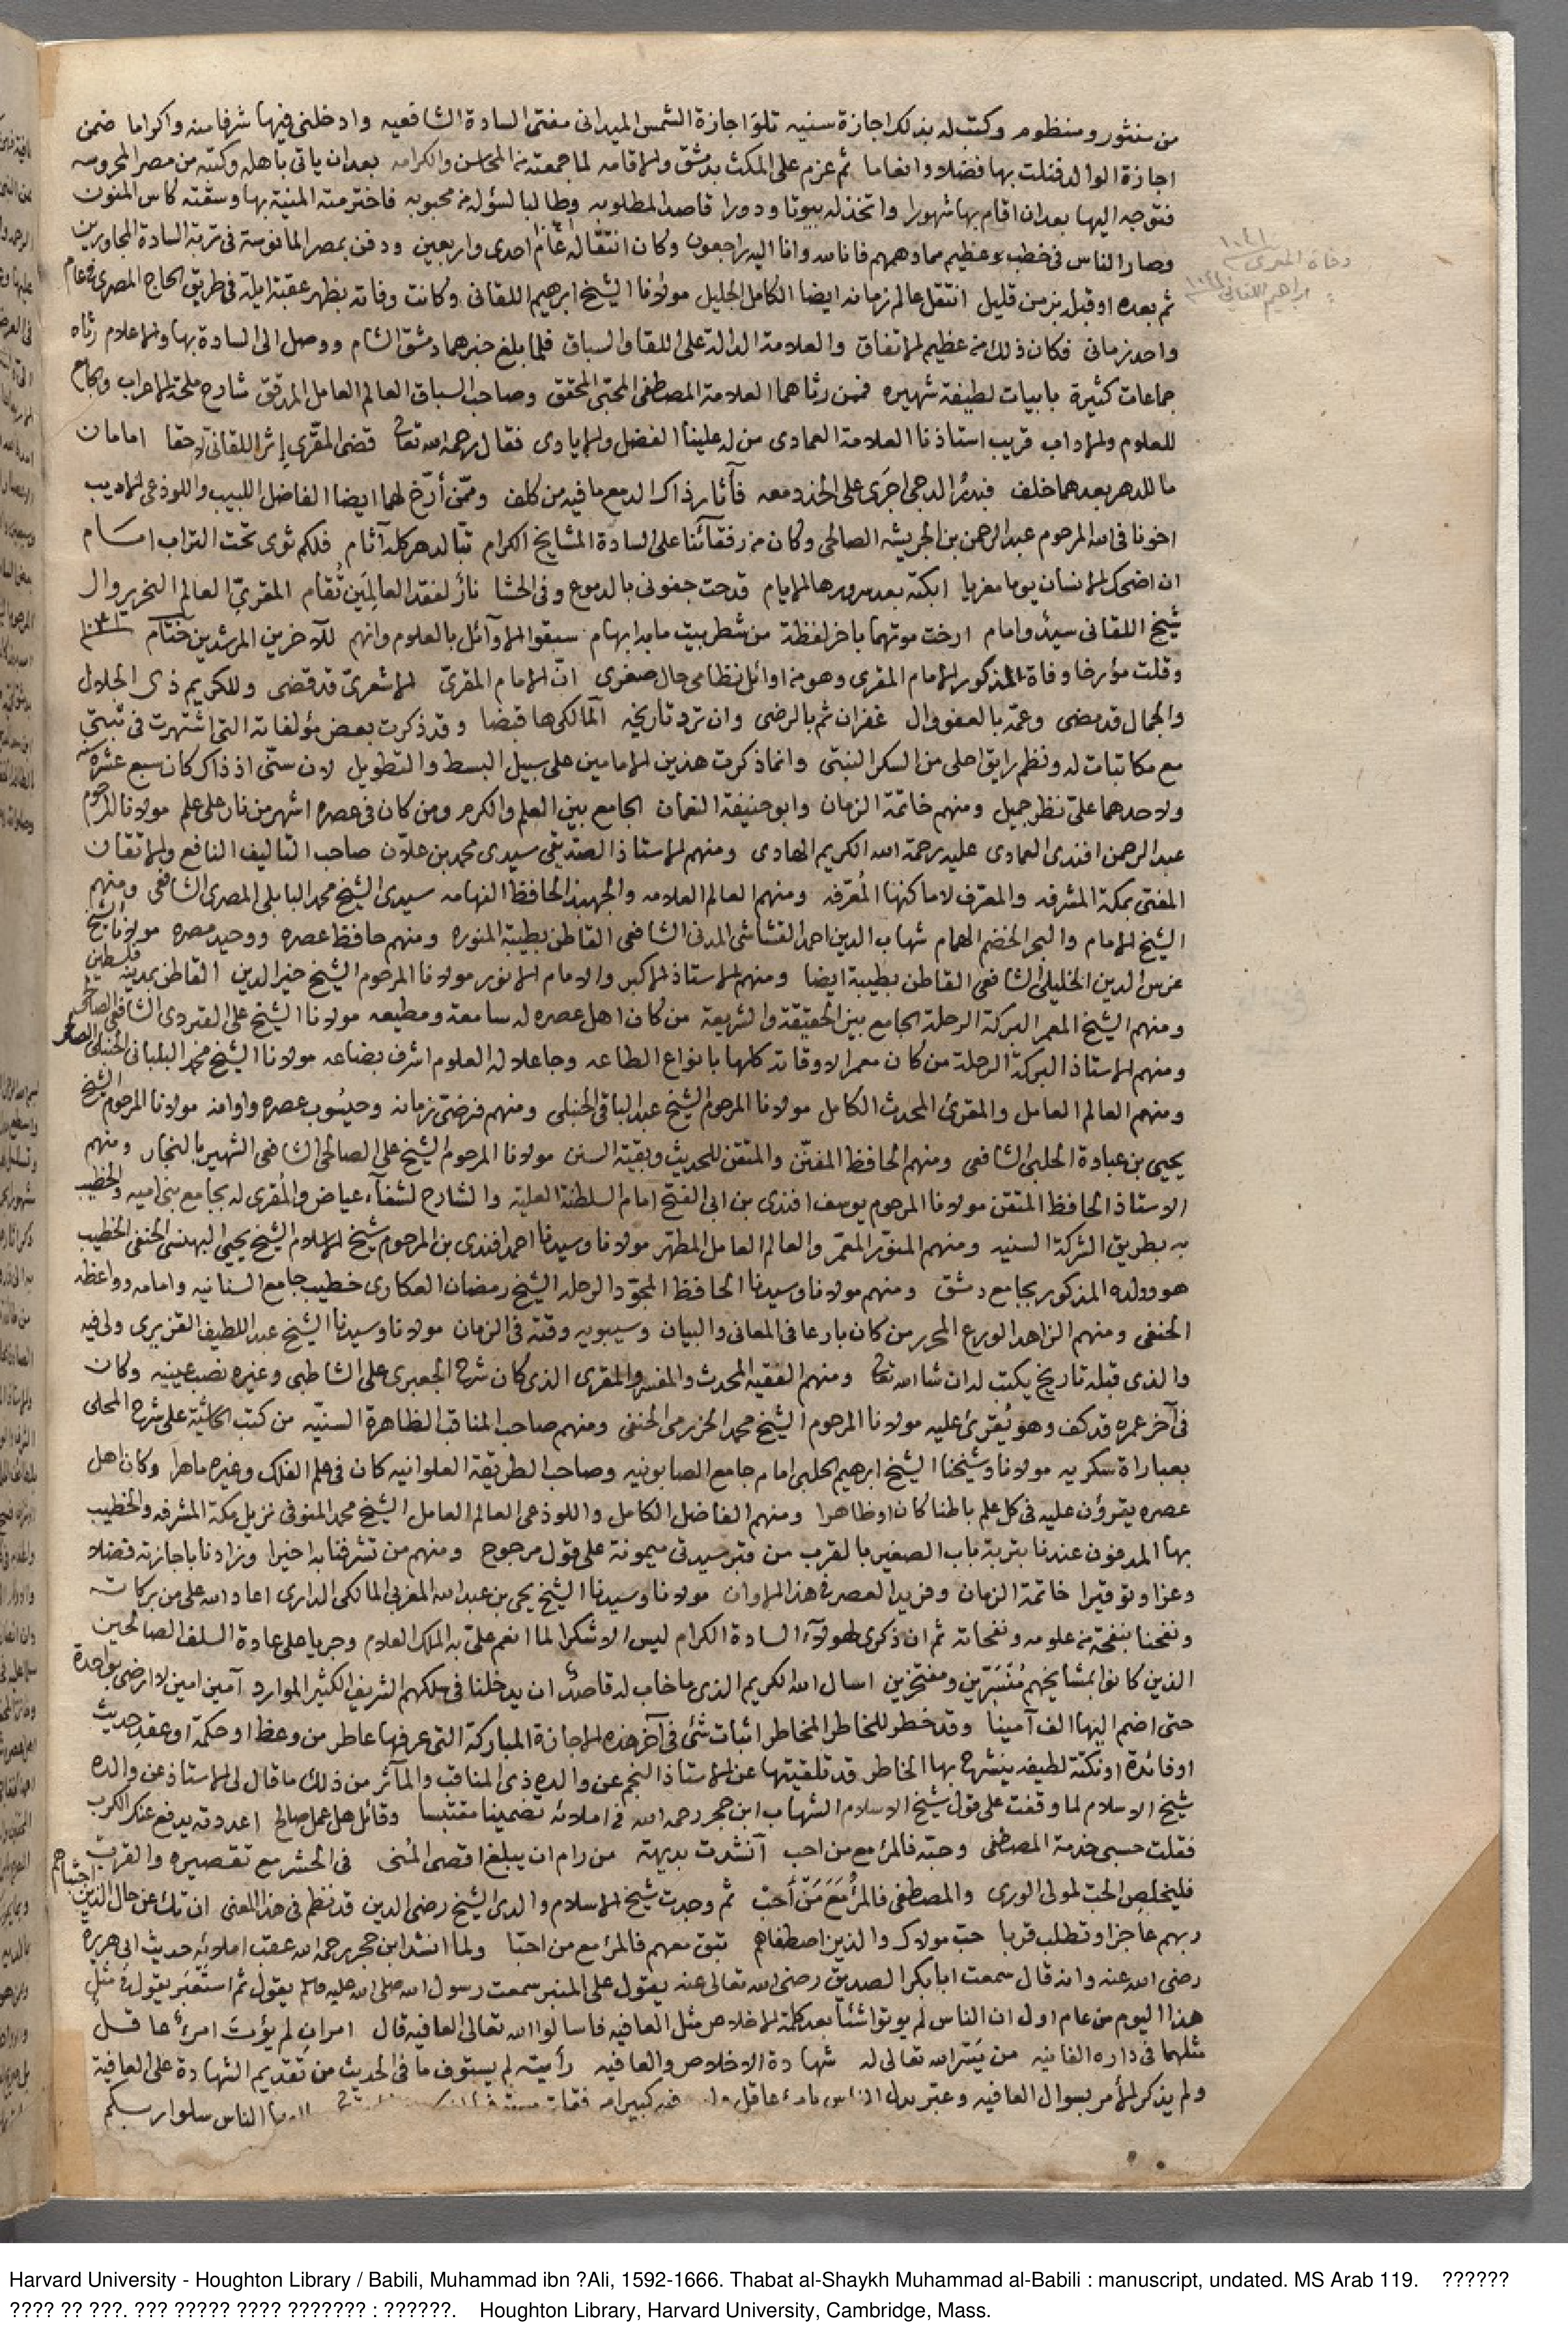 من منثور ومنظوم وكتب له بذلك اجازة سنيه تلو اجازة الشمس الميدانى مفتى السادة الشافعيه وادخلنى فيها شرفا منه واكراما ضمن
اجازة الوالد فنلت بها فضلا وانعاما ثم عزم على المكث بدمشق والاقامه لما جمعته من المحاسن والكرامه بعد ان ياتى باهله وكتبه من مصر المحروسه
فتوجه اليها بعد ان اقام بها شهورا واتخذ له بيوتا ودورا قاصدا لمطلوبه وطالبا لسؤله من محبوبه فاخترمته المنية بها وسقته كاس المنون
وصار الناس فى خطب عظيم مما دهمهم فانا لله وانا اليه راجعون وكان انتقاله عام احدى واربعين ودفن بمصر المانوسة فى تربة السادة المجاورين
وفاة المقرى ١٠٤١
ابراهيم اللقانى ١٠٤١
ثم بعده او قبله بزمن قليل انتقل عالم زمانه ايضا الكامل الجليل مولانا الشيخ ابرهيم اللقانى وكانت وفاته بظهر عقبة ايلة فى طريق الحاج المصرى فى عام
واحد زمانى فكان ذلك من عظيم الاتفاق والعلامة الدالة على اللقا والسباق فلما بلغ خبرهما دمشق الشام ووصل الى السادة بها والاعلام رثاه
جماعات كثيرة بابيات لطيفة شهيره فمن رثاهما العلامة المصطفى المحبى المحقق وصاحب السباق العالم العامل المدقق شارح ملحة الاعراب وجامع
للعلوم والاداب قريب استاذنا العلامة العمادى من له علينا الفضل والايادى فقال رحمه الله تعالى قضى المقرى اثر اللقانى لاحقا امامان
ما للدهر بعدهما خلف فبدر الدجى اجرى على الخد دمعه فآثار ذاك الدمع ما فيه من كلف وممن أرخ لهما ايضا الفاضل اللبيب واللوذعى الاديب
اخونا فى الله المرحوم عبد الرحمن بن الجريشه الصالحى وكان من رفقائنا على السادة المشايخ الكرام تبا لدهر كله آثام فلكم ثوى تحت التراب امام
ان اضحك الانسان يوما مغريا ابكته بعد سرورها الايام قدحت جفونى بالدموع وفى الحشا نار لفقد العالمين تقام المقرى العالم النحرير وال
شيخ اللقانى سيد وامام ارخت موتهما باخر لفظة من شطر بيت ما به ابهام سبقوا الاوآئل بالعلوم وانهم للآخرين المرشدين ختام ١٠٤١
وقلت مؤرخا وفاة المذكور الامام المقرى وهو من اوائل نظامى حال صغرى انّ الامام المقرىّ الاشعرىّ قد قضى وللكريم ذى الجلال
والجمال قد مضى وعمّه بالعفو وال غفران ثم بالرضى وان ترد تاريخه المالكى ها قبضا وقد ذكرت بعض مؤلفاته التى اشتهرت فى ثبتى
مع مكاتبات له ونظم رايق احلى من السكر النبتى وانما ذكرت هذين الامامين على سبيل البسط والتطويل لان سنى اذ ذاك كان سبع عشرة سنه
ولاحدهما علىّ نظر جميل ومنهم خاتمة الزمان وابو حنيفة النعمان الجامع بين العلم والكرم ومن كان فى عصره اشهر من نار على علم مولانا المرحوم
عبد الرحمن افندى العمادى عليه رحمة الله الكريم الهادى ومنهم الاستاذ الصديقى سيدى محمد بن علان صاحب التاليف النافع والاتقان
المفتى بمكة المشرفه والمعرف لاماكنها المعرّفه ومنهم العالم العلامه والجهبذ الحافظ الفهامه سيدى الشيخ محمد البابلى المصرى الشافعى ومنهم
الشيخ الامام والبحر الخضم الهمام شهاب الدين احمد القشاشى المدنى الشافعى القاطن بطيبة المنوره ومنهم حافظ عصره ووحيد مصره مولانا الشيخ
غرس الدين الخليلى الشافعى القاطن بطيبة ايضا ومنهم الاستاذ الاكبر والامام الانور مولانا المرحوم الشيخ خير الدين القاطن بمدينة فلسطين
ومنهم الشيخ المعمر البركة الرحلة الجامع بين الحقيقة والشريعة من كان اهل عصره له سامعة ومطيعه مولانا الشيخ على القبردى الشافعى الصالحى
ومنهم الاستاذ البركة الرحلة من كان معمرا لاوقاته كلها بانواع الطاعه وجاعلا له العلوم اشرف بضاعه مولانا الشيخ محمد البلبانى الحنبلى الصالحى
ومنهم العالم العامل والمقرى المحدث الكامل مولانا المرحوم الشيخ عبد الباقى الحنبلى ومنهم فرضى زمانه وحيسوب عصره واوانه مولانا المرحوم الشيخ
يحيى بن عبادة الحلبى الشافعى ومنهم الحافظ المفنّن والمتقن للحديث وبقية السنن مولانا المرحوم الشيخ على الصالحى الشافعى الشهير بالنجار ومنهم
الاستاذ الحافظ المتقن مولانا المرحوم يوسف افندى بن ابى الفتح امام السلطنة العلية والشارح لشفآء عياض والمقرى له بجامع بنى اميه والخطيب
به بطريق الشركة السنيه ومنهم المنوّر المعمّر والعالم العامل المطهّر مولانا وسيدنا احمد افندى بن المرحوم شيخ الاسلام الشيخ يحيى البهنسى الحنفى الخطيب
هو وولده المذكور بجامع دمشق ومنهم مولانا وسيدنا الحافظ المجوّد الرحله الشيخ رمضان العكارى خطيب جامع السنانيه وامامه وواعظه
الحنفى ومنهم الزاهد الورع المحرر من كان بارعا فى المعانى والبيان وسيبويه وقته فى الزمان مولانا وسيدنا الشيخ عبد اللطيف القزيرى ولى فيه
والذى قبله تاريخ يكتب له ان شا الله تعالى ومنهم الفقيه المحدث والمفسر والمقرى الذى كان شرح الجعبرى على الشاطبى وغيره نصب عينيه وكان
فى آخر عمره قد كف وهو يُقرئ عليه مولانا المرحوم الشيخ محمد الحزرمى الحنفى ومنهم صاحب المناقب الظاهرة السنيّه من كتب الحاشية على شرح المحلى
بعباراة سكريه مولانا وشيخنا الشيخ ابرهيم الحلبى امام جامع الصابونيه وصاحب الطريقة العلوانيه كان فى علم الفلك وغيره ماهرا وكان اهل
عصره يقرؤن عليه فى كل علم باطنا كان او ظاهرا ومنهم الفاضل الكامل واللوذعى العالم العامل الشيخ محمد المنوفى نزيل مكة المشرفه والخطيب
بها المدفون عندنا بتربة باب الصغير بالقرب من قبر سيدتى ميمونة على قول مرجوح ومنهم من تشرفنا به اخيرا وزادنا باجازته فضلا
وعزا وتوقيرا خاتمة الزمان وفريد العصر فى هذا الاوان مولانا وسيدنا الشيخ يحيى بن عبد الله المغربى المالكى الدارى اعاد الله على من بركاته
ونفحنا بنفحة من علومه ونفحاته ثم ان ذكرى لهولآء السادة الكرام ليس الا شكرا لما انعم علىّ به الملك العلام وجريا على عادة السلف الصالحين
الذين كانوا بمشايخهم مُتَسَتّرين ومفتخرين اسال الله الكريم الذى ما خاب له قاصدٌ ان يدخلنا فى سلكهم الشريف الكثير الموارد آمين امين لا ارضى بواحدة
حتى اضم اليها الف آمينا وقد خطر للخاطر المخاطر اثبات شئ فى آخر هذه الاجازة المباركة التى عرفها عاطر من وعظ او حكمة او عقد حديث
او فائدة او نكتة لطيفه ينشرح بها الخاطر قد تلقيتها عن الاستاذ النجم عن والده ذى المناقب والمآثر من ذلك ما قال لى الاستاذ عن والده
شيخ الاسلام لما وقفت على قول شيخ الاسلام الشهاب ابن حجر رحمه الله فى املائه تضمينا مقتبسا وقائل هل عمل صالح اعددته يدفع عنك الكرب
فقلت حسبى خدمة المصطفى وحبّه فالمرء مع من احب آنشدت بديهة من رام ان يبلغ اقصى المُنى فى الحشر مع تقصيره والقرب
فليخلص الحب لمولى الورى والمصطفى فالمرءُ مَعَ مَنْ أَحَبْ ثم وجدت شيخ الاسلام والدى الشيخ رضى الدين قد نظم فى هذا المعنى ان تك عن حال الذين اجتباهم
ربهم عاجزا وتطلب قربا حب مولاك والذين اصطفاهم تبق معهم فالمرء مع من احبّا ولما انشد ابن حجر رحمه الله عقب املائه حديث ابى هريرة
رضى الله عنه وانه قال سمعت ابا بكر الصديق رضى الله تعالى عنه يقول على المنبر سمعت رسول الله صلى الله عليه وسلم يقول ثم استَعْبَر يقول فى مثل
هذا اليوم من عام اول ان الناس لم يوتوا شئا بعد كلمة الاخلاص مثل العافيه فاسالوا الله تعالى العافيه قال امران لم يؤتَ امرءٌ عاقل
مثلهما فى داره الفانيه من يَسّر الله تعالى له شهادة الاخلاص والعافيه رأيته لم يستوف ما فى الحديث من تقديم الشهادة على العافية
ولم يذكر الأمر بسوال العافيه وعبّر بدل الناس بامرء عاقل فقلت الناس سلوا ربكم
Harvard University - Houghton Library / Babili, Muhammad ibn ?Ali, 1592-1666. Thabat al-Shaykh Muhammad al-Babili : manuscript, undated. MS Arab 119. ??????
???? ?? ???. ??? ????? ???? ??????? : ??????. Houghton Library, Harvard University, Cambridge, Mass.